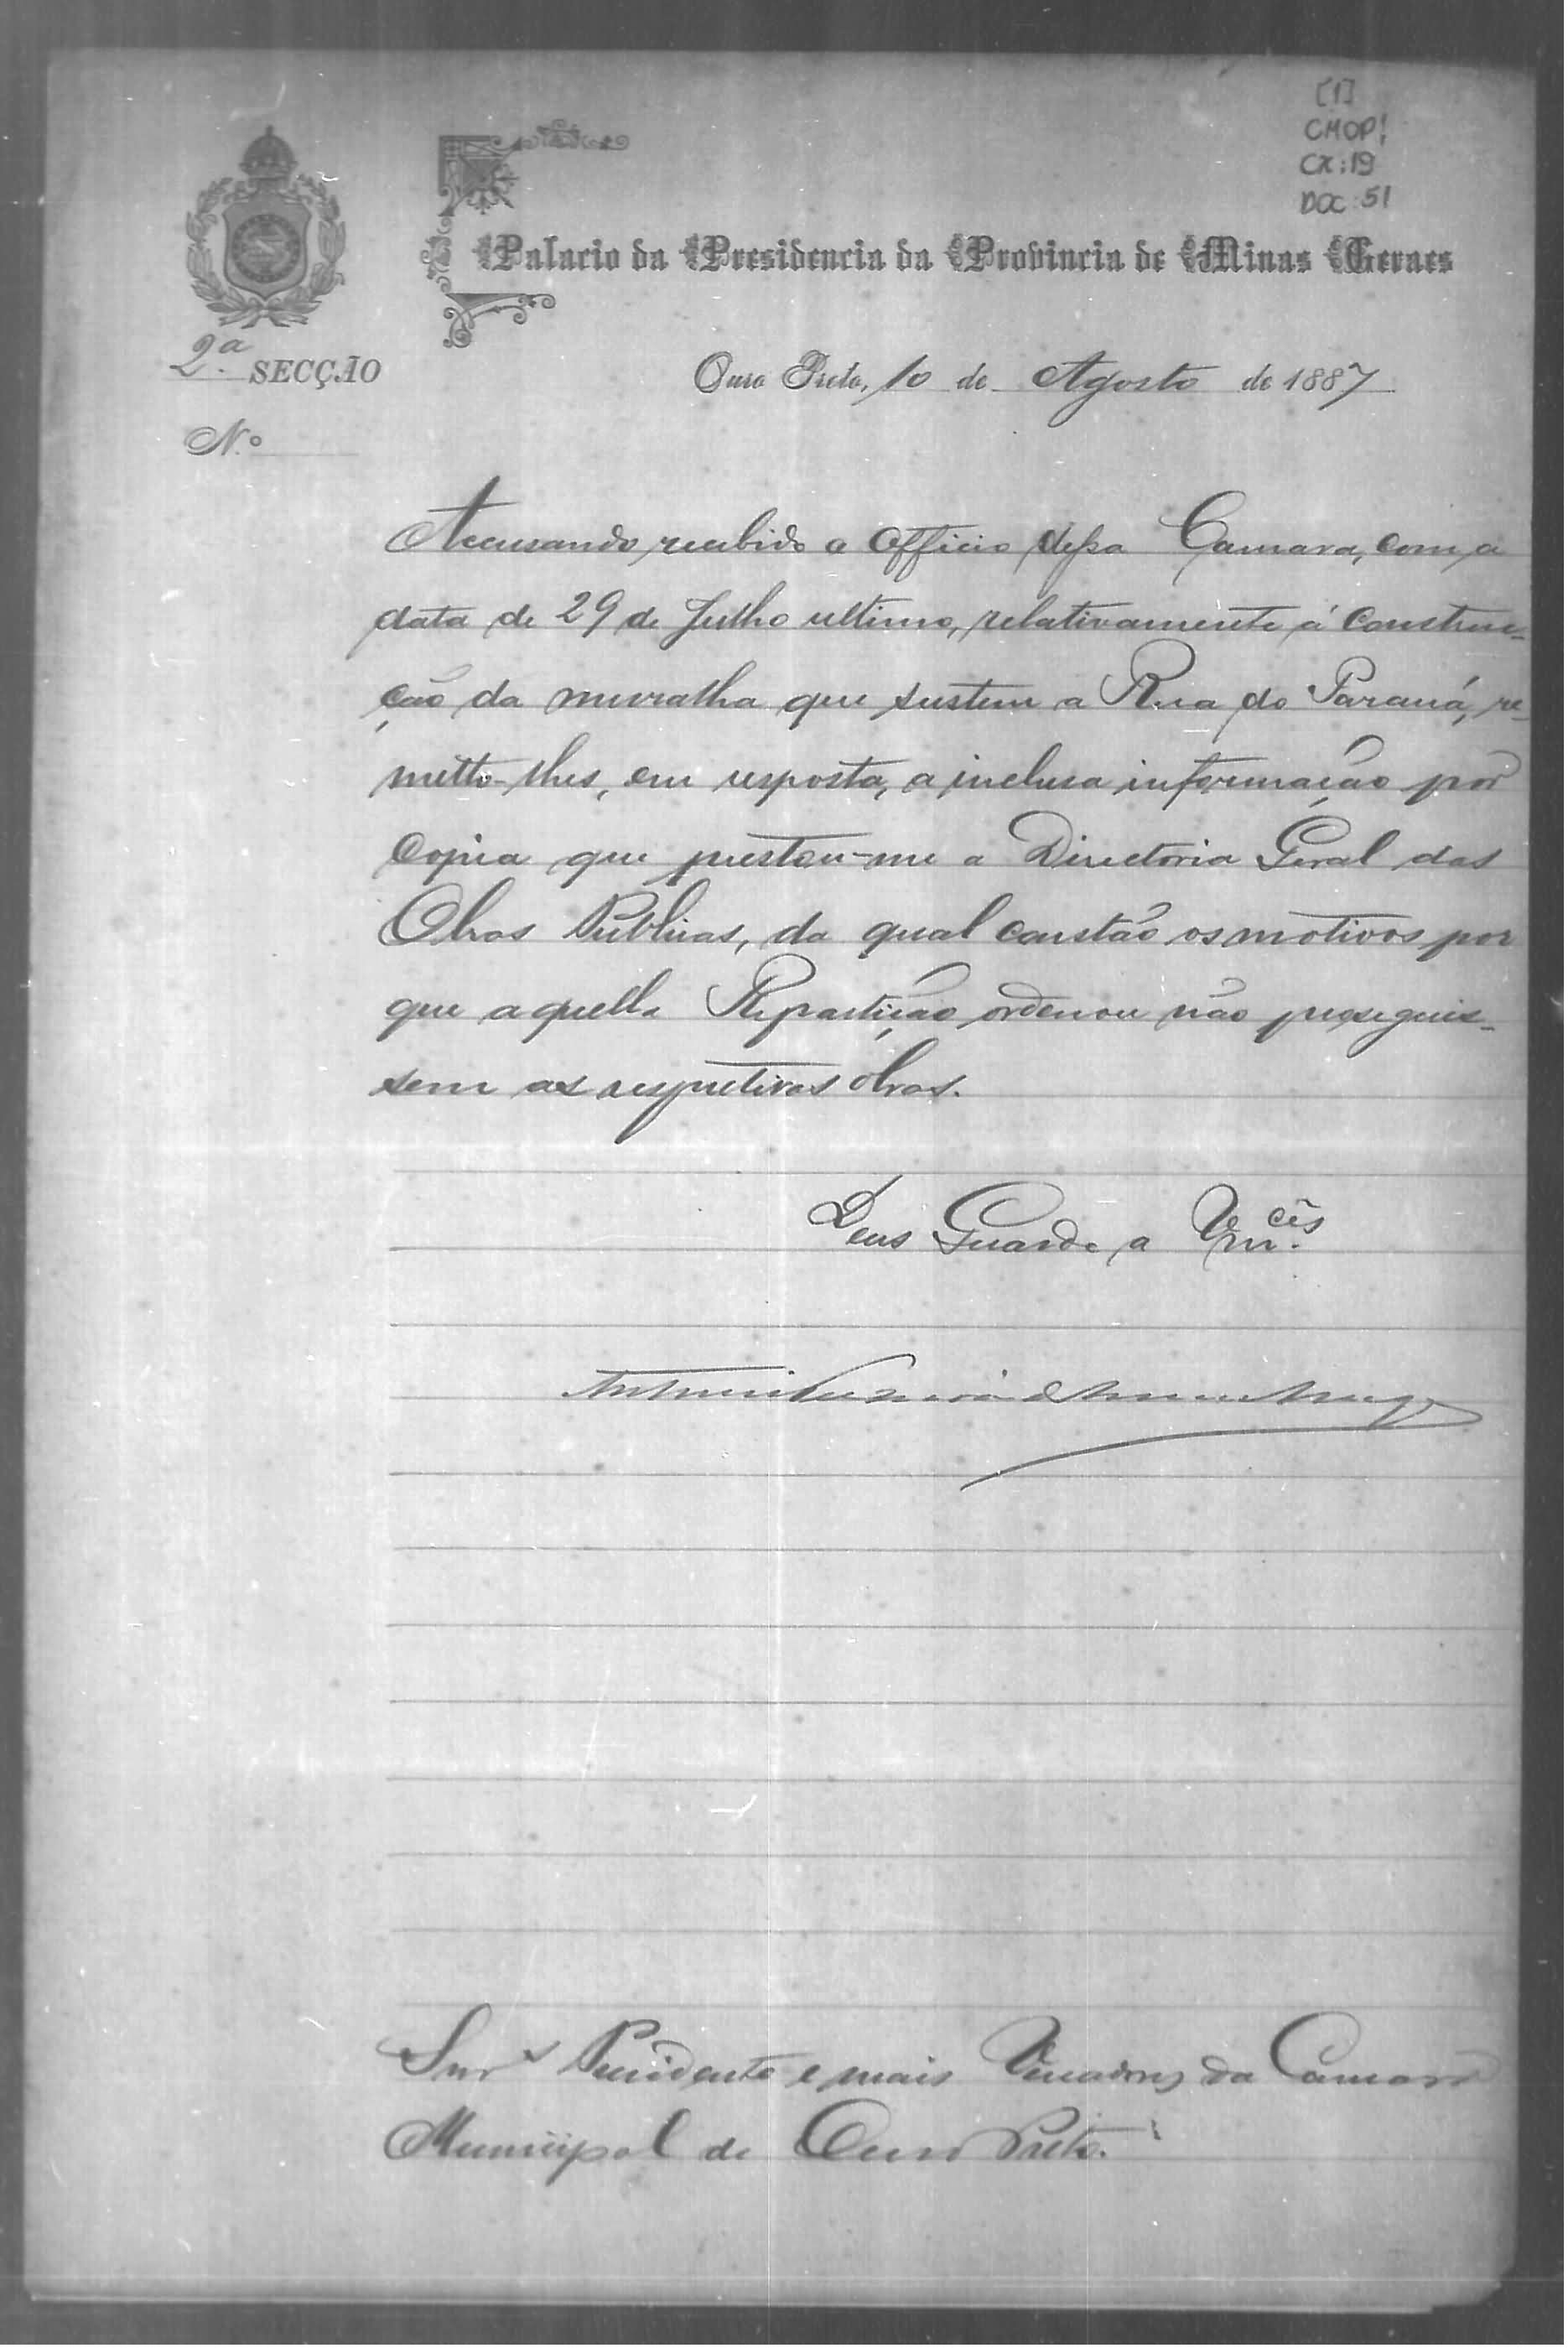 [1]
CMOP!
CX: 19
DOC: 51
Palacio da Presidencia da Provincia de Minas Geraes
2.ª SECÇÃO
Ouro Preto, 10 de Agosto de 1887
N.º
Accusando recebido o officio dessa Camara, com a
data de 29 de Julho ultimo, relativamente á construc-
ção da muralha que sustem a Rua do Paraná, re-
metto-lhes, em resposta, a inclusa informação por
copia que prestou-me a Directoria Geral das
Obras Publicas, da qual constão os motivos por
que aquella Repartição ordenou não proseguis-
sem as respectivas obras.
Deus Guarde a Vm.cês
Snrs Presidente e mais Vereadores da Camara
Municipal de Ouro Preto.